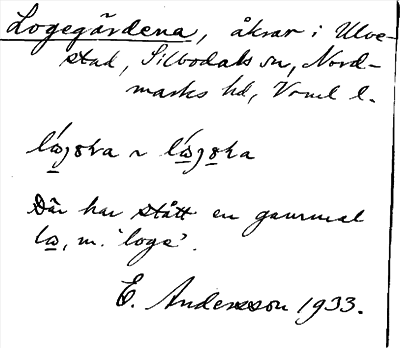 Logegärdena, åkrar i Ulve-
stad, Silbodals sn, Nord-
marks hd, Vrml l.
Där har stått en gammal
m. 'loge'.
E. Andersson 1933.